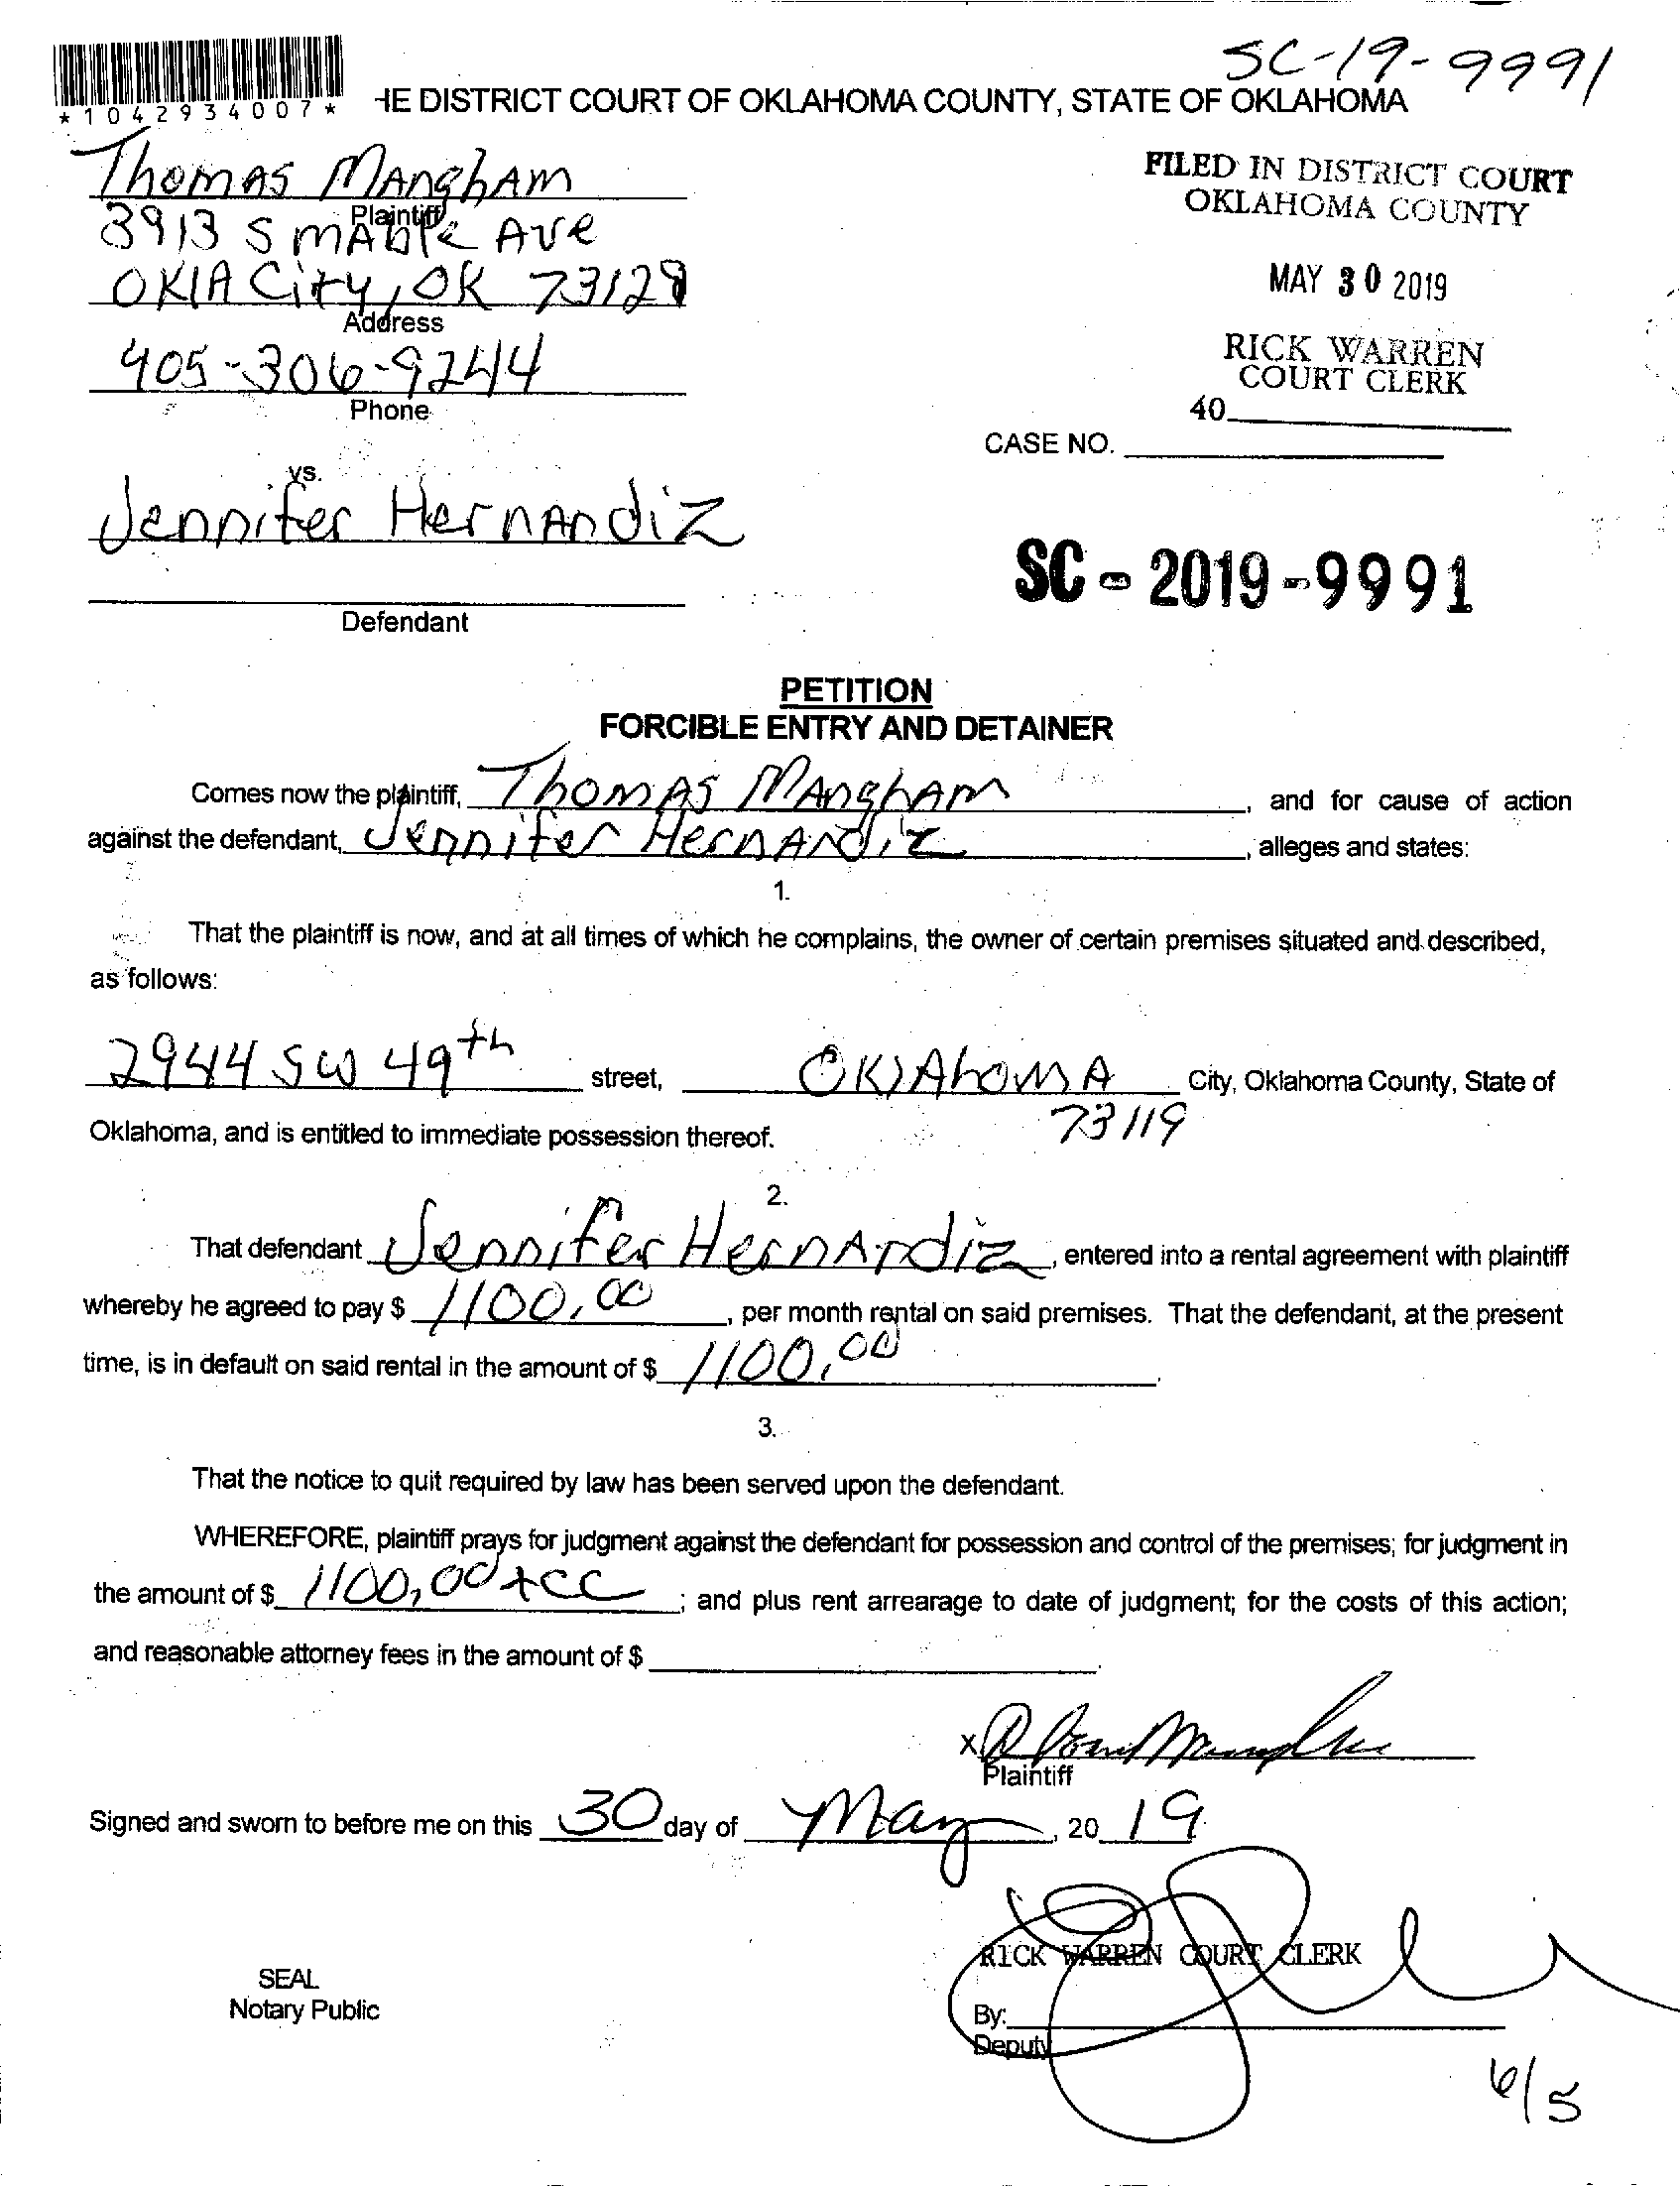 SC-19-9991
*1042934007*
HE DISTRICT COURT OF OKLAHOMA COUNTY, STATE OF OKLAHOMA
Thomas Mangham
Plaintiff
3913 S Mable Ave
Okla City, OK 73129
Address
405-306-9244
Phone
FILED IN DISTRICT COURT
OKLAHOMA COUNTY
MAY 30 2019
RICK WARREN
COURT CLERK
40
CASE NO.
vs.
Jennifer Hernandiz
Defendant
SC-2019-9991
PETITION
FORCIBLE ENTRY AND DETAINER
Comes now the plaintiff, Thomas Mangham, and for cause of action
against the defendant, Jennifer Hernandiz, alleges and states:
1.
That the plaintiff is now, and at all times of which he complains, the owner of certain premises situated and described,
as follows:
2944 SW 49th street, Oklahoma City, Oklahoma County, State of
73119
Oklahoma, and is entitled to immediate possession thereof.
2.
That defendant Jennifer Hernandiz, entered into a rental agreement with plaintiff
whereby he agreed to pay $ 1100.00, per month rental on said premises. That the defendant, at the present
time, is in default on said rental in the amount of $ 1100.00.
3.
That the notice to quit required by law has been served upon the defendant.
WHEREFORE, plaintiff prays for judgment against the defendant for possession and control of the premises; for judgment in
the amount of $ 1100,00+CC; and plus rent arrearage to date of judgment; for the costs of this action;
and reasonable attorney fees in the amount of $.
X
Plaintiff
Signed and sworn to before me on this 30 day of May, 2019
RICK WARREN COURT CLERK
SEAL
Notary Public
By:
Deputy
6/5